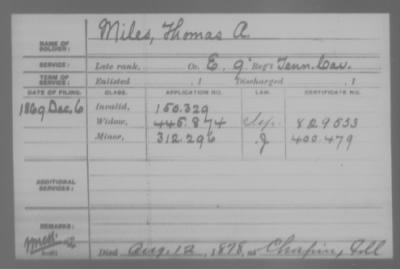 Miles, Thomas A.
NAME OF SOLDIER:
SERVICE: Late rank, Co. E, 9 Reg't Tenn. Cav.
TERM OF SERVICE: Enlisted , 1 Discharged , 1
DATE OF FILING. CLASS. APPLICATION NO. LAW. CERTIFICATE NO.
1869 Dec. 6 Invalid, 150.329
Widow, 445.874 829633
Minor, 312.296 G 400.479
ADDITIONAL SERVICES:
REMARKS:
Died Aug. 12, 1878, at Chapin, Ill